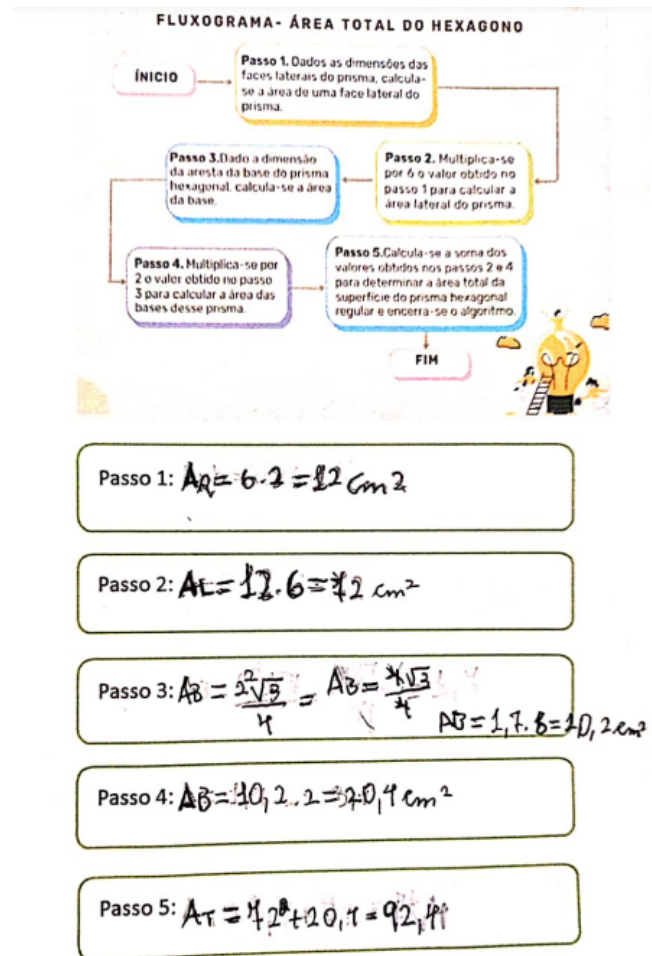 FLUXOGRAMA- ÁREA TOTAL DO HEXAGONO
ÍNICIO
Passo 1. Dados as dimensões das
faces laterais do prisma, calcula-
se a área de uma face lateral do
prisma.
Passo 2. Multiplica-se
por 6 o valor obtido no
passo 1 para calcular a
área lateral do prisma.
Passo 3.Dado a dimensão
da aresta da base do prisma
hexagonal, calcula-se a área
da base.
Passo 4. Multiplica-se por
2 o valor obtido no passo
3 para calcular a área das
bases desse prisma.
Passo 5.Calcula-se a soma dos
valores obtidos nos passos 2 e 4
para determinar a área total da
superfície do prisma hexagonal
regular e encerra-se o algoritmo.
FIM
Passo 1: AR= 6.2=12 cm2
Passo 2: AL=12.6=72 cm²
Passo 3: AB = 2²√3/4 = AB= 4√3/4
AB=1,7.6=10,2 cm²
Passo 4: AB=10,2.2=20,4 cm²
Passo 5: AT = 72+20,4=92,4